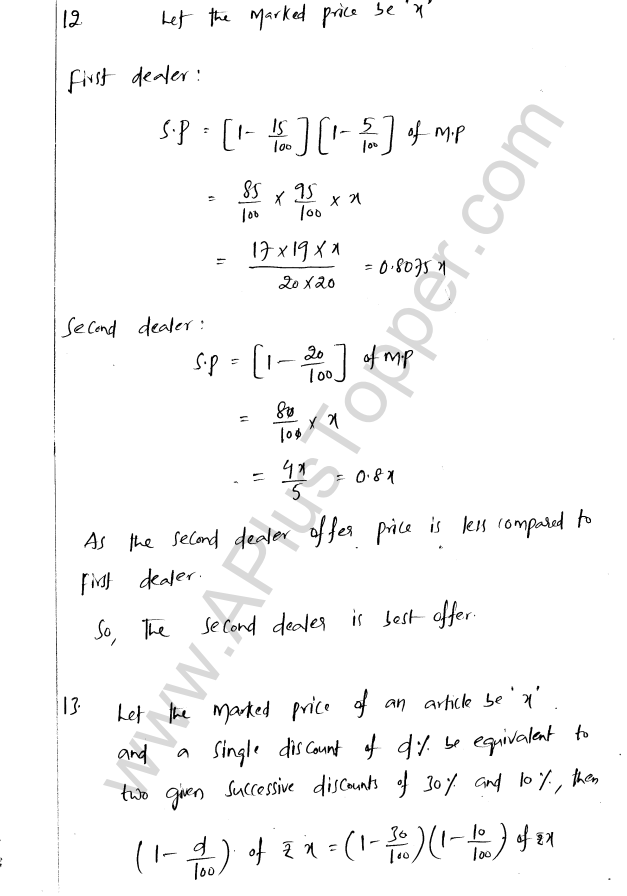 12 Let the Marked price be 'x'
First dealer:
S.P = [1 - 15/100] [1 - 5/100] of M.P
= 85/100 × 95/100 × x
= 17×19×x / 20×20 = 0.8075 x
Second dealer:
S.P = [1 - 20/100] of M.P
= 80/100 × x
= 4x/5 = 0.8x
As the second dealer offer price is less compared to
First dealer.
So, The second dealer is best offer.
13. Let the Marked price of an article be 'x'.
and a single discount of d% be equivalent to
two given successive discounts of 30% and 10%, then
(1 - d/100) of ₹ x = (1 - 30/100) (1 - 10/100) of ₹x
www.APlusTopper.com